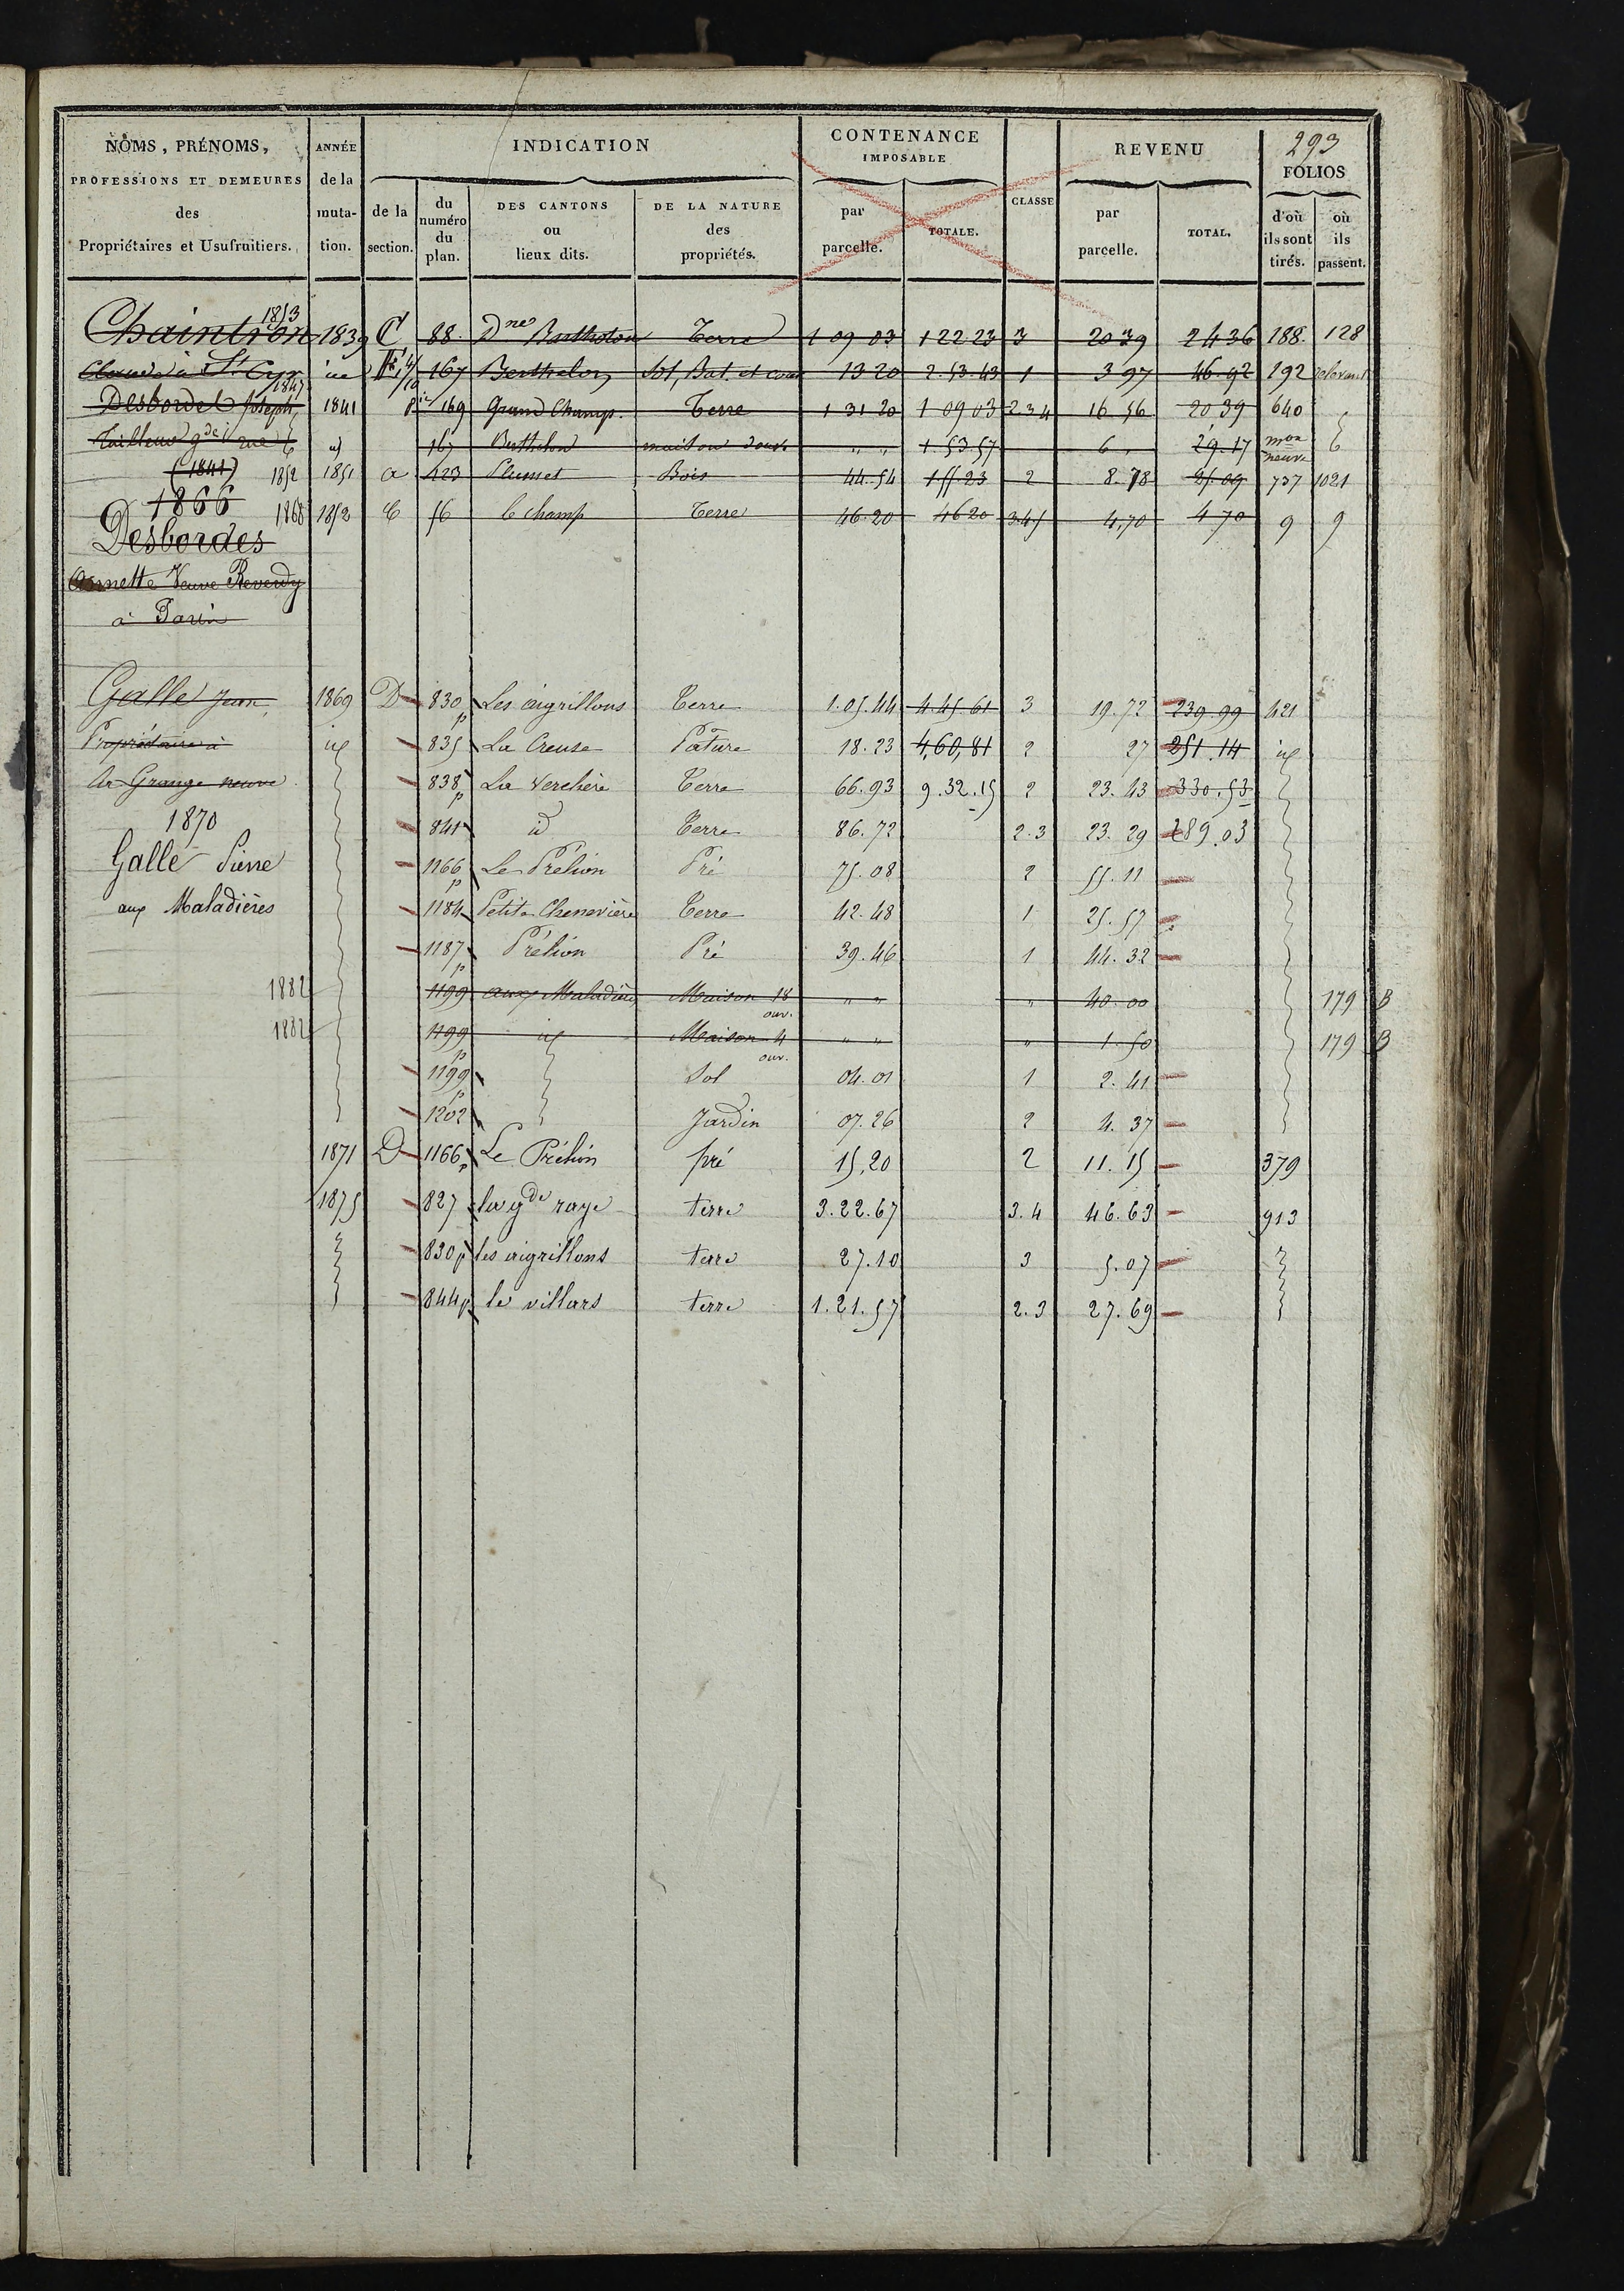 293
NOMS, PRÉNOMS, PROFESSIONS ET DEMEURES des Propriétaires et Usufruitiers.
ANNÉE de la muta- tion.
INDICATION
de la section.
du numéro du plan.
DES CANTONS ou lieux dits.
DE LA NATURE des propriétés.
CONTENANCE IMPOSABLE
par parcelle.
TOTALE.
CLASSE
REVENU
par parcelle.
TOTAL.
FOLIOS
d'où ils sont tirés.
où ils passent.
1853
Chaintron 1839 C 88. Dne Bertholon Terre 1 09 03 1 22 23 3 20 39 24 36 188. 128
Claude à St Cyr 167 Berthelon Sol, Bat. et cour 13 20 2.53.43 1 3 97 46.92 192
1847
Desbordes Joseph, 1841 169 Grand Champ. Terre 1 31 20 1 09 03 2 3 4 16 56 20 39 640
Tailleur gde rue id 167 Berthelon maison " " 1.53.57 6 " 29.17 mon neuve
(1841) 1852 1851 a 423 Plumet Bois 44.54 155 23 2 8.78 25.09 737 1021
1866 1868 1852 C 56 le champ Terre 46.20 46 20 3.4.5 4,70 4 70 9 9
Desbordes
Annette Veuve Reverdy
à Paris
Galle Jean, 1869 D 830 p Les aigrillons Terre 1.05.44 4 45.61 3 19.72 239.99 421
Propriétaire à id 835 La Creuse Pâture 18.23 4,60,81 2 27 251.14 id
la Grange neuve 838 p La Verchère Terre 66.93 9.32.15 2 23.43 330.53
1870 841 id Terre 86.72 2.3 23.29 289.03
Galle Pierre 1166 p Le Prélion Pré 75.08 2 55.11
aux Maladières 1184 Petite Chenevière Terre 42.48 1 25.57
1187 p Prélion Pré 39.46 1 44.32
1882 1199 aux Maladières Maison 18 ouv. " " " 40.00 179 B
1882 1199 p id Maison 4 ouv. " " " 1.50 179 B
1199 p Sol 04.01 1 2.41
1202 Jardin 07.26 2 4.37
1871 D 1166 p Le Prélion pré 15,20 2 11.15 379
1875 827 la gde raye terre 3.22.67 3.4 46.63 913
830 p les aigrillons terre 27.10 3 5.07
844 p le villars terre 1.21.57 2.3 27.69